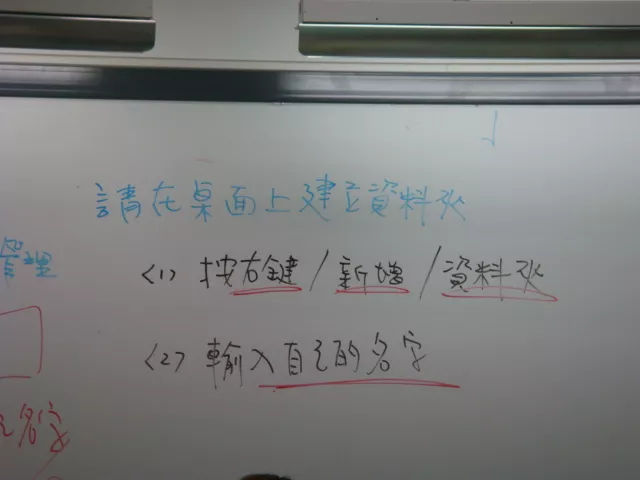 請在桌面上建立資料夾
管理
<1> 按右鍵/新增/資料夾
<2> 輸入自己的名字
名字